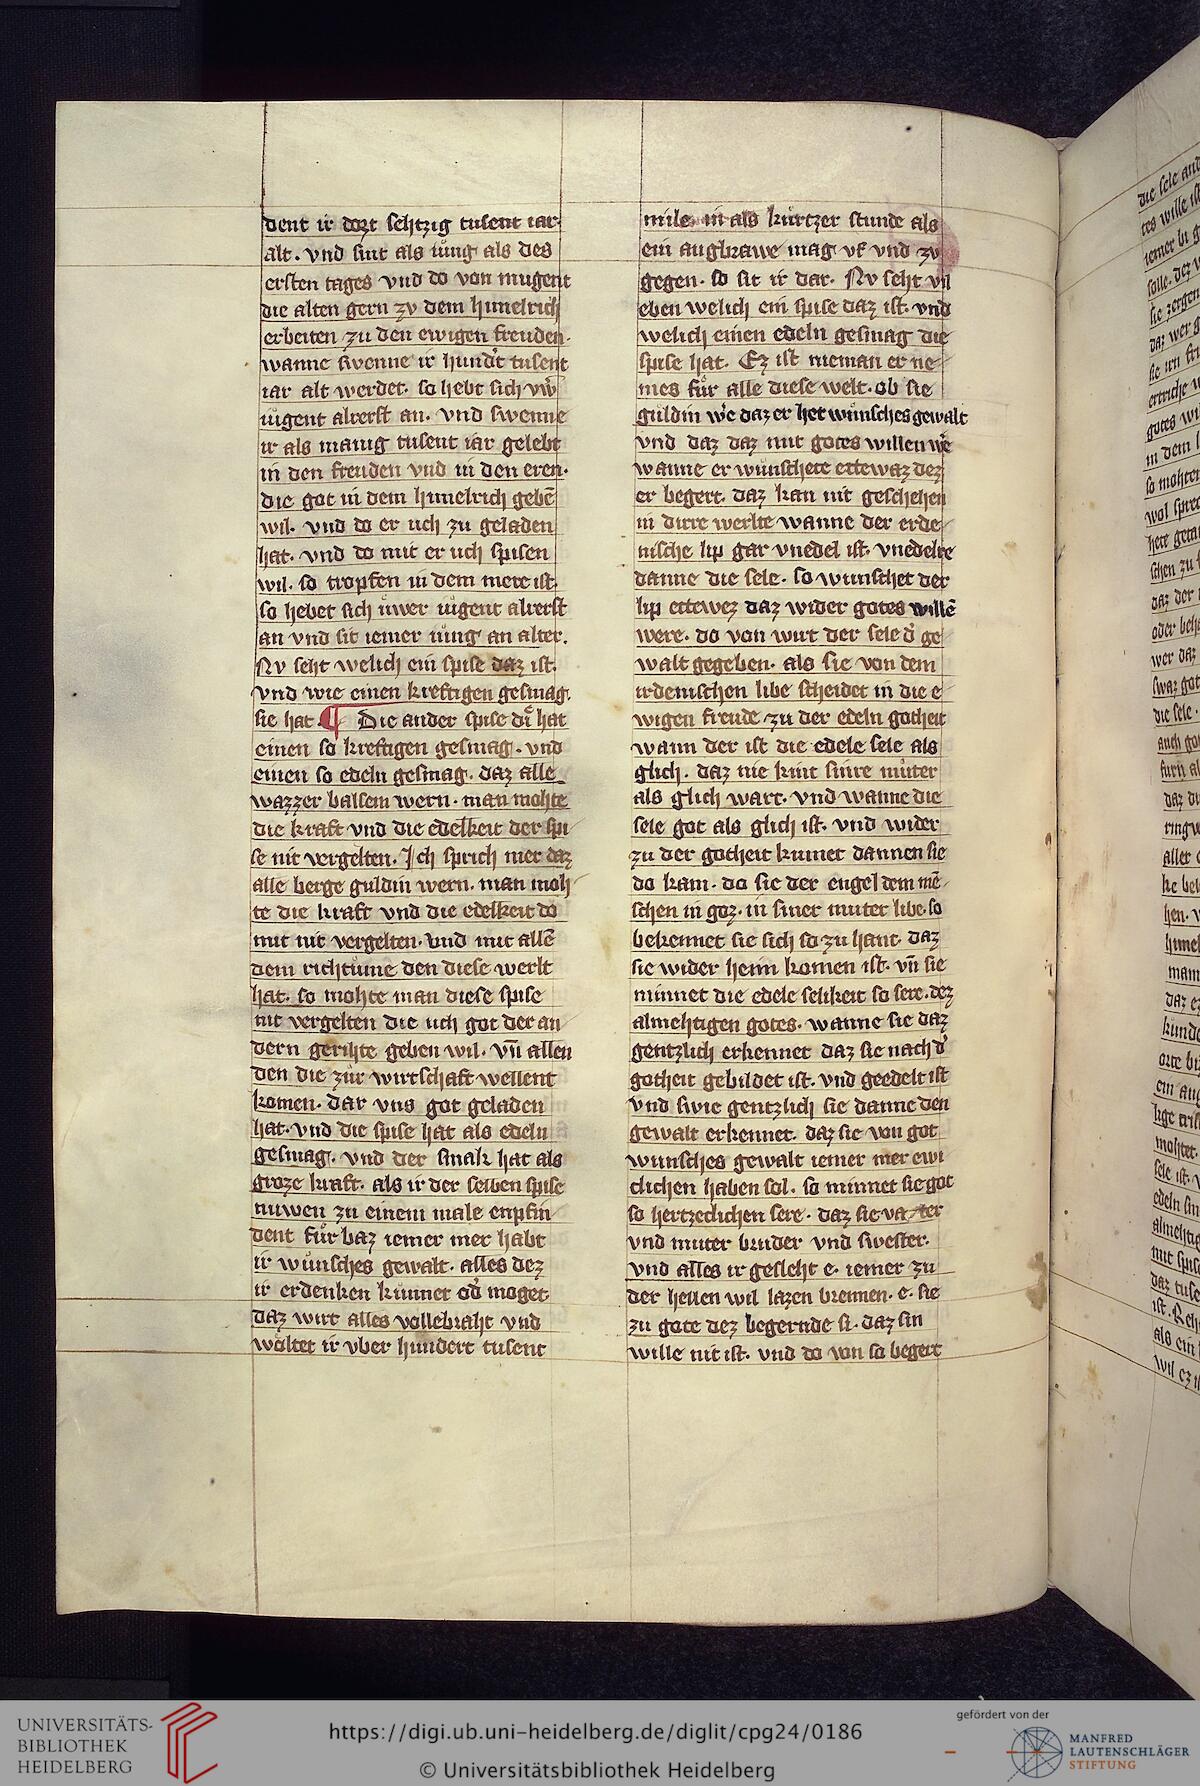 dent ir dort sehtzig tusent iar
alt. vnd sint als iung als des
ersten tages vnd do von mugent
die alten gern zv dem himelrich
erbeiten zu den ewigen freuden.
wanne swenne ir hundt tusent
iar alt werdet. so hebt sich vw
iugent alrerst an. vnd swenne
ir als manig tusent iar gelebt
in den freuden vnd in den eren.
die got in dem himelrich gebē
wil. vnd do er uch zu geladen
hat. vnd do mit er uch spisen
wil. so tropfen in dem mere ist.
so hebet sich uwer iugent alrerst
an vnd sit iemer iung an alter.
Nv seht welich ein spise daz ist.
vnd wie einen kreftigen gesmag.
sie hat. ¶ Die ander spise di hat
einen so kreftigen gesmag. vnd
einen so edeln gesmag. daz alle
wazzer balsem wern. man mohte
die kraft vnd die edelkeit der spi
se nit vergelten. Ich sprich mer daz
alle berge guldin wern. man moh
te die kraft vnd die edelkeit do
mit nit vergelten. vnd mit allē
dem richtume den diese werlt
hat. so mohte man diese spise
nit vergelten die uch got der an
dern gerihte geben wil. vn̄ allen
den die zur wirtschaft wellent
komen. dar vns got geladen
hat. vnd die spise hat als edeln
gesmag. vnd der smak hat als
groze kraft. als ir der selben spise
nuwen zu einem male enpfin
dent fur baz iemer mer habt
ir wunsches gewalt. alles dez
ir erdenken kunnet od moget
daz wirt alles vollebraht vnd
woltet ir vber hundert tusent
mile. in als kurtzer stunde als
ein augbrawe mag vf vnd zv
gegen. so sit ir dar. Nv seht vn̄
eben welich ein spise daz ist. vnd
welich einen edeln gesmag die
spise hat. Ez ist nieman er ne
mes fur alle diese welt. ob sie
guldin we daz er het wunsches gewalt
vnd daz daz mit gotes willen we
wanne er wunschete ettewaz dez
er begert. daz kan nit geschehen
in dirre werlte wanne der erde
nische lip gar vnedel ist. vnedelre
danne die sele. so wunschet der
lip ettewez daz wider gotes willē
were. do von wirt der sele d ge
walt gegeben. als sie von dem
irdenischen libe scheidet in die e
wigen freude zu der edeln gotheit
wann der ist die edele sele als
glich. daz nie kint sinre muter
als glich wart. vnd wanne die
sele got als glich ist. vnd wider
zu der gotheit kumet dannen sie
do kam. do sie der engel dem mē
schen in goz. in siner muter libe. so
bekennet sie sich so zu hant. daz
sie wider heim komen ist. vn̄ sie
minnet die edele selikeit so sere. dez
almehtigen gotes. wanne sie daz
gentzlich erkennet daz sie nach d
gotheit gebildet ist. vnd geedelt ist
vnd swie gentzlich sie danne den
gewalt erkennet. daz sie von got
wunsches gewalt iemer mer ewi
clichen haben sol. so minnet sie got
so hertzeclichen sere. daz sie va ter
vnd muter bruder vnd swester.
vnd alles ir gesleht e. iemer zu
der hellen wil lazen brennen. e. sie
zu gote dez begernde si. daz sin
wille nit ist. vnd do von so begert
UNIVERSITÄTS-
BIBLIOTHEK
HEIDELBERG
https://digi.ub.uni-heidelberg.de/diglit/cpg24/0186
© Universitätsbibliothek Heidelberg
gefördert von der
MANFRED
LAUTENSCHLÄGER
STIFTUNG